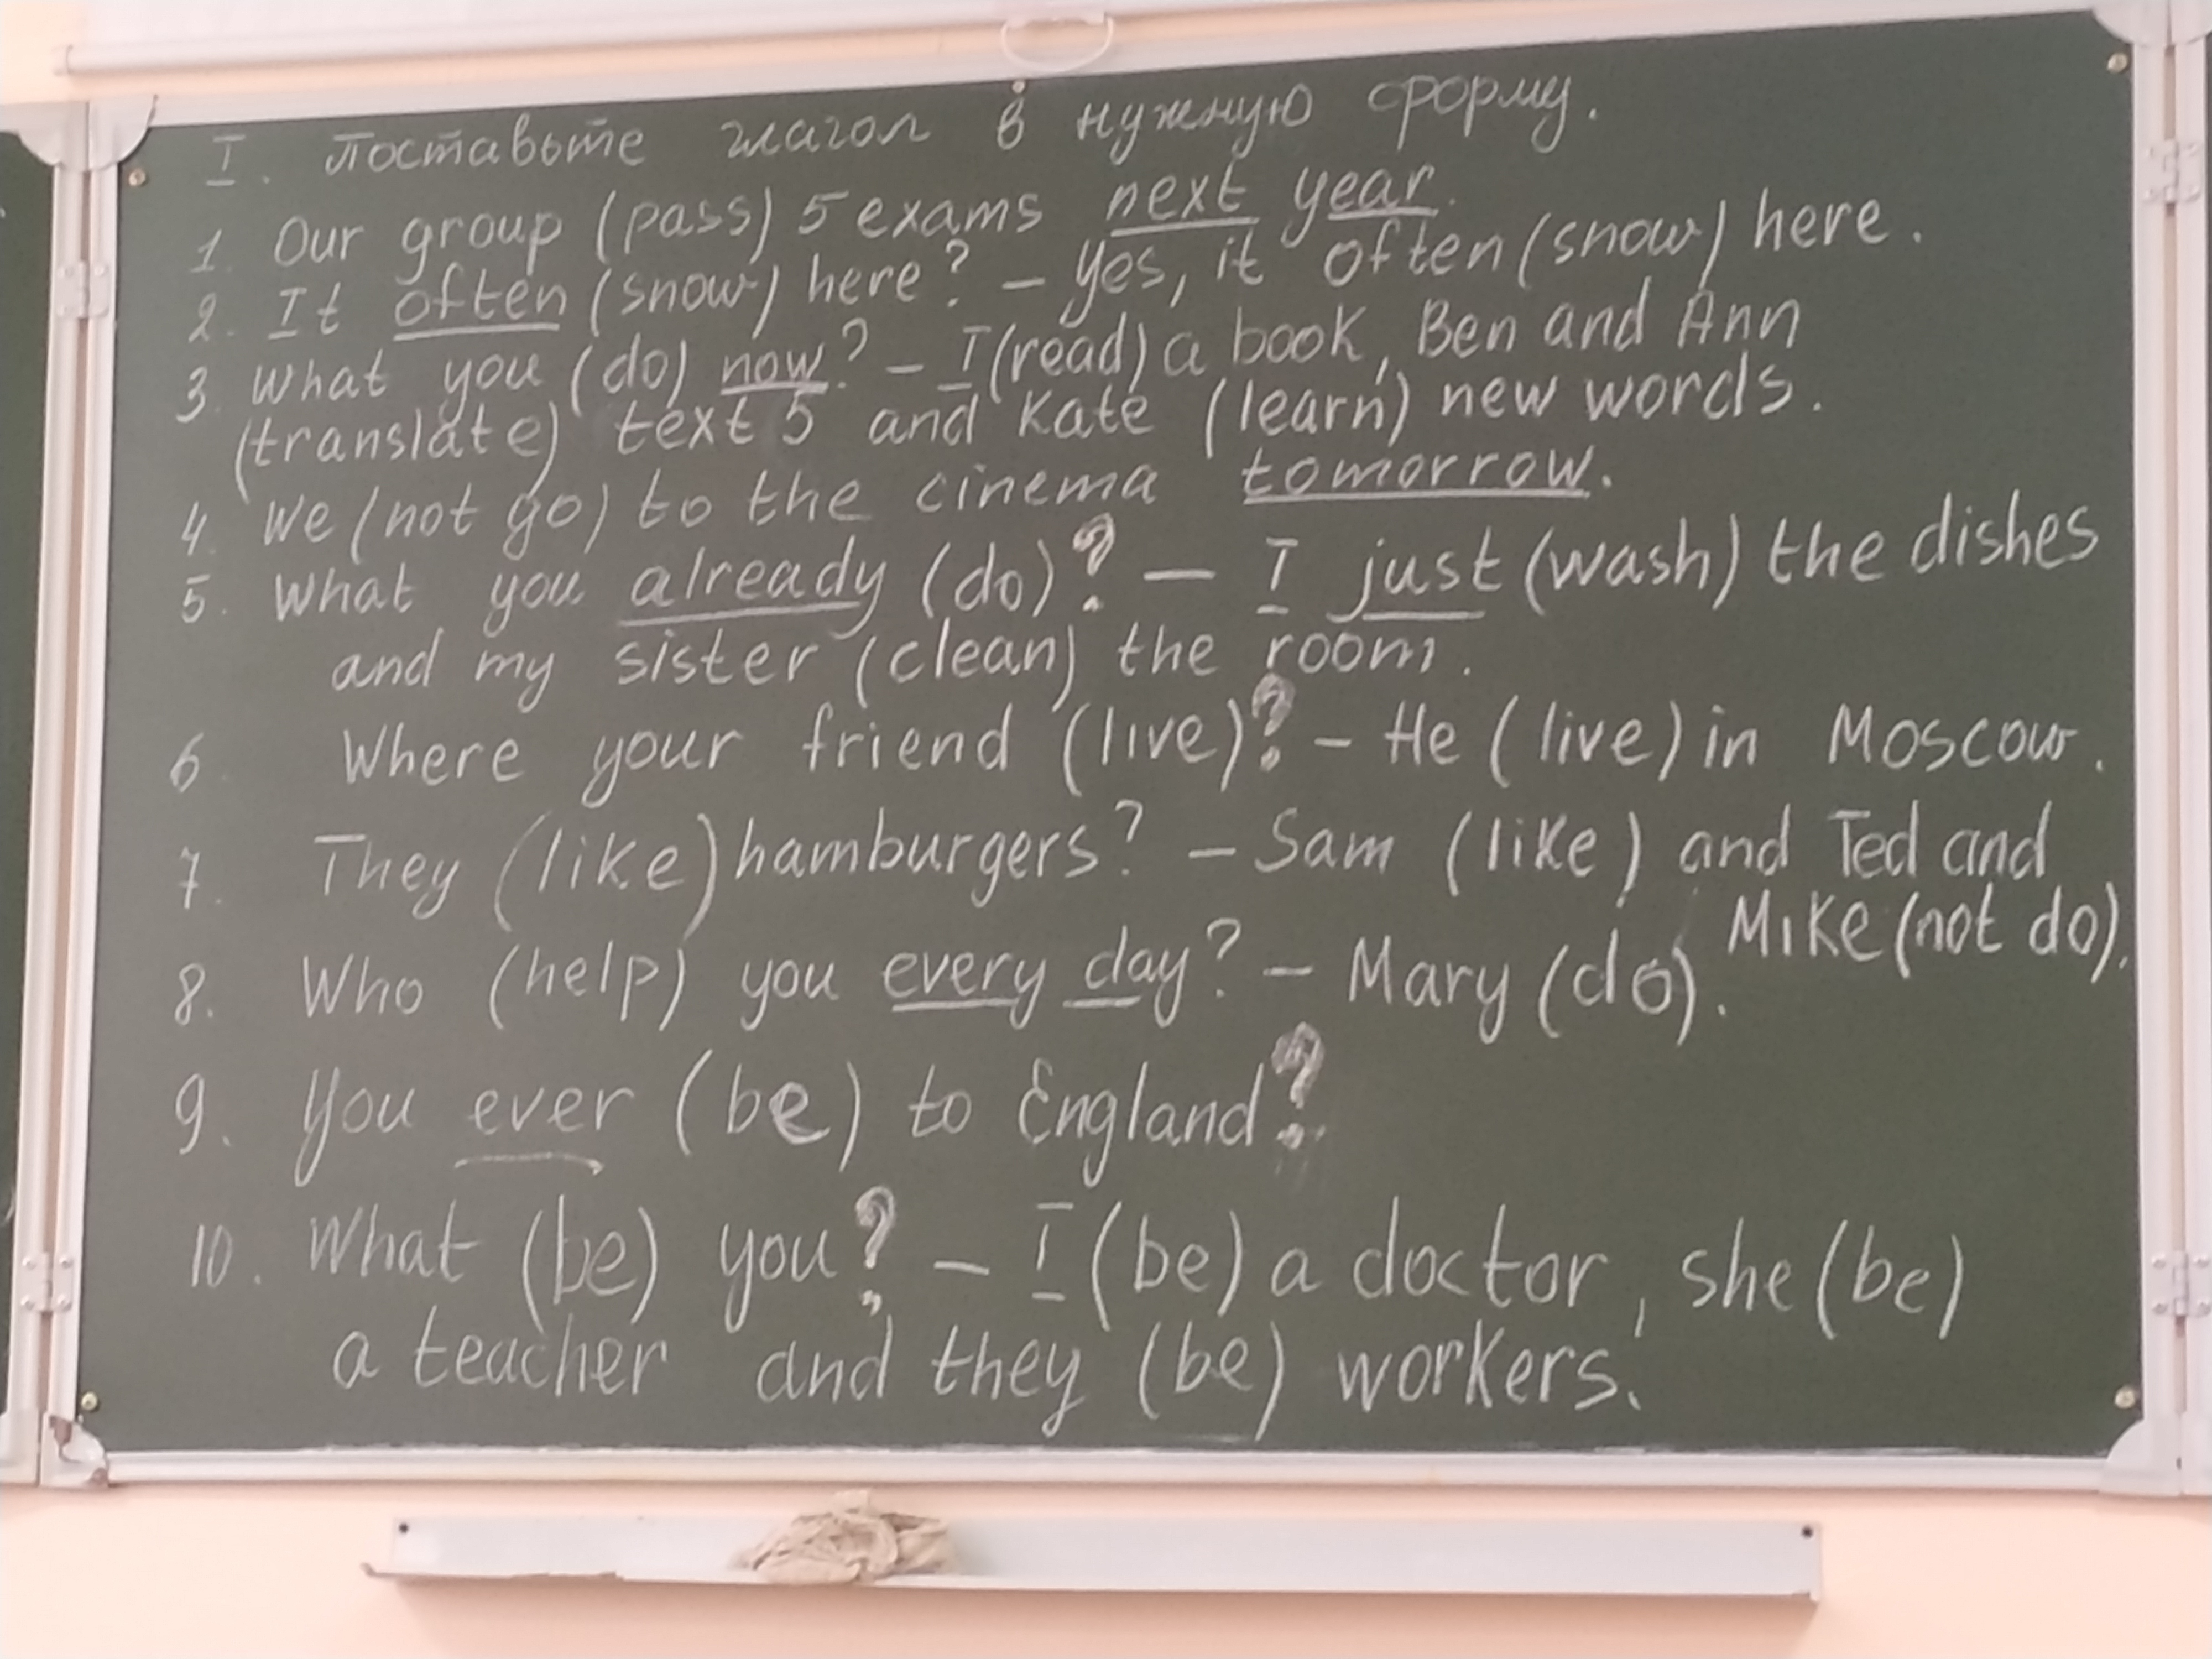 I. Поставьте глагол в нужную форму.
1. Our group (pass) 5 exams next year.
2. It often (snow) here? – Yes, it often (snow) here.
3. What you (do) now? – I (read) a book, Ben and Ann
(translate) text 5 and Kate (learn) new words.
4. We (not go) to the cinema tomorrow.
5. What you already (do)? – I just (wash) the dishes
and my sister (clean) the room.
6 Where your friend (live)? – He (live) in Moscow.
7. They (like) hamburgers? – Sam (like) and Ted and
Mike (not do).
8. Who (help) you every day? – Mary (do).
9. You ever (be) to England?
10. What (be) you? – I (be) a doctor, she (be)
a teacher and they (be) workers.